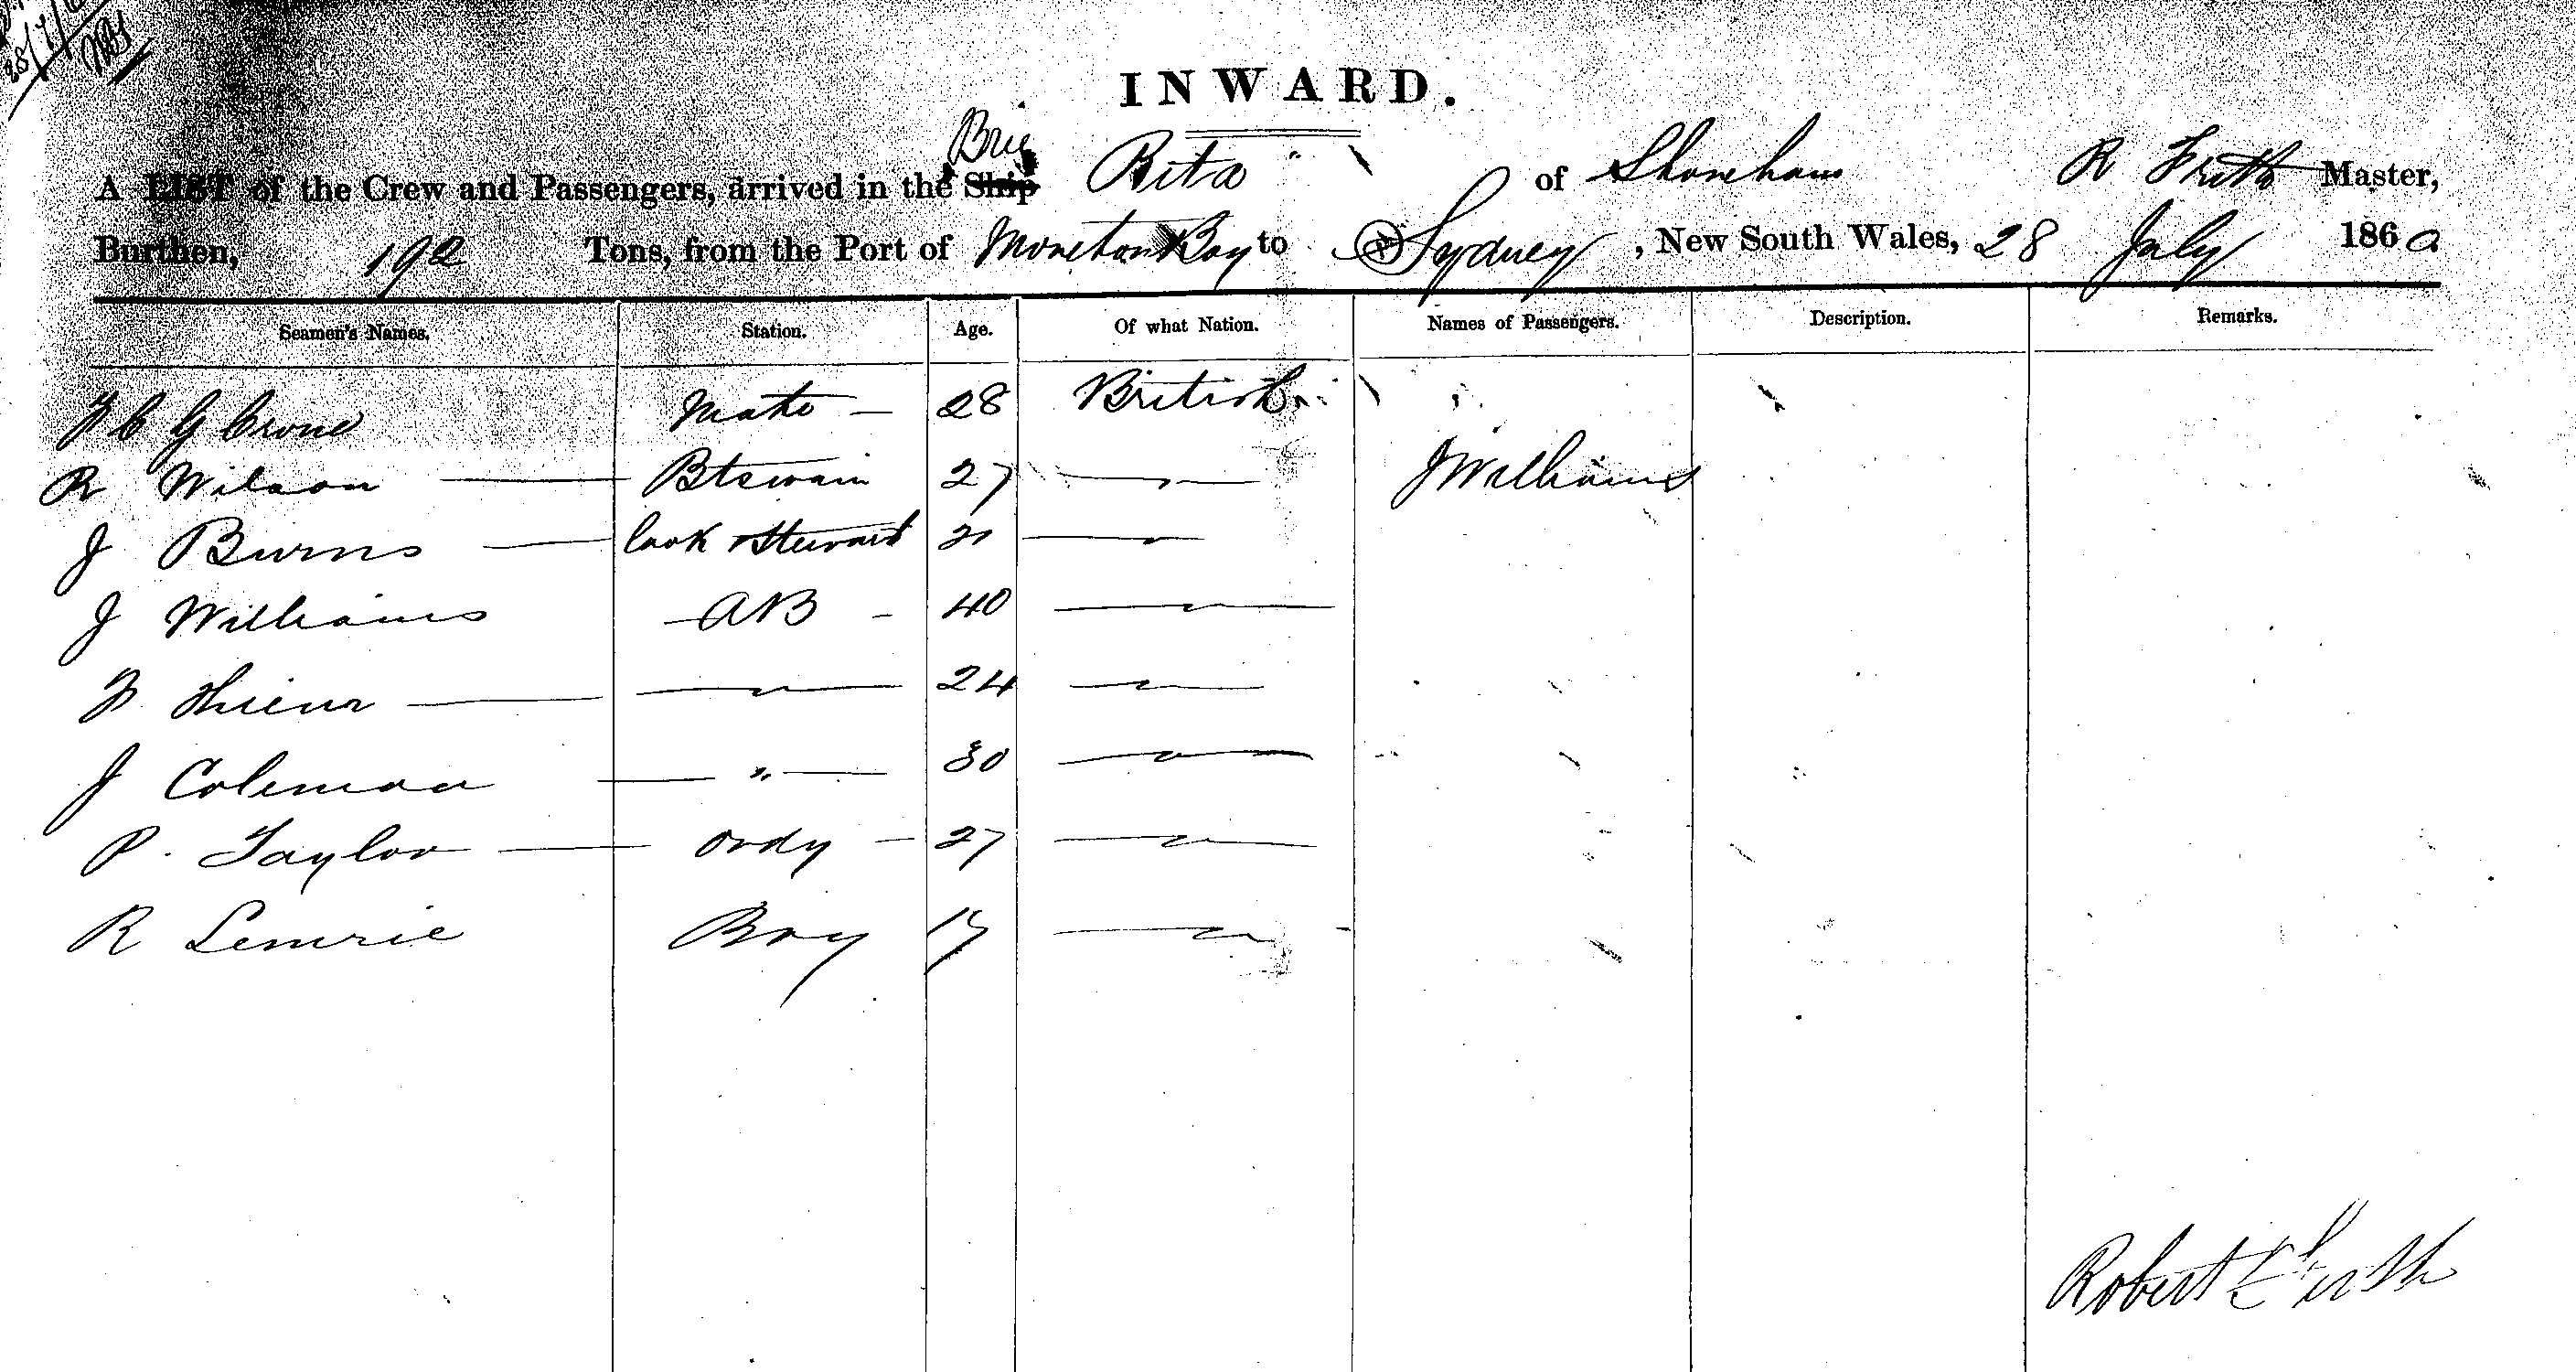 28/7/6
INWARD.
Brig
A LIST of the Crew and Passengers, arrived in the Ship Rita of Shoreham R Frith Master,
Burthen, 192 Tons, from the Port of Moreton Bay to Sydney, New South Wales, 28 July 1860
Seamen's Names. Station. Age. Of what Nation. Names of Passengers. Description. Remarks.
Mate — 28 British
R Wilson — Btswain 27 — " — J Williams
J Burns — Cook & Steward 21 — " —
J Williams — AB — 40 — " —
— " — 24 — " —
J Coleman — " — 30 — " —
P. Taylor — Ordy — 27 — " —
R Boy — " —
Robert Frith